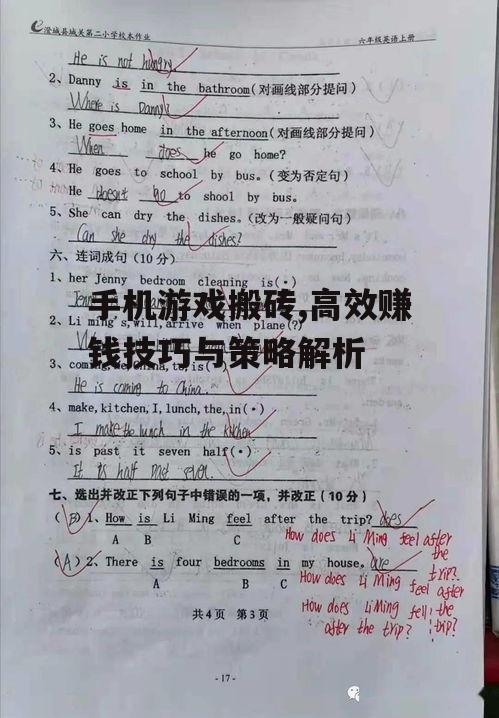 澄城县城关第二小学校本作业 六年级英语上册
He is not hungry
2、Danny is in the bathroom(对画线部分提问)
Where is Danny?
3、He goes home in the afternoon(对画线部分提问)
When does he go home?
4、He goes to school by bus.(变为否定句)
He doesn't go to shool by bus.
5、She can dry the dishes.(改为一般疑问句)
Can she dry the dishes?
六、连词成句(10分)
1、her Jenny bedroom cleaning is(·)
手机游戏搬砖,高效赚
2、Li ming's,will,arrive when plane(?)
钱技巧与策略解析
3、
He is coming to China.
4、make,kitchen,I,lunch,the,in(·)
I make the lunch in the kitchen
5、is past it seven half(·)
It is half past seven.
七、选出并改正下列句子中错误的一项,并改正(10分)
(B)1、How is Li Ming feel after the trip? does
A B C
How does Li Ming feel after the trip?
(A)2、There is four bedrooms in my house. are
A B C
How does Li Ming feel after the trip?
How does Li Ming fell after the trip?
共4页 第3页
-17-